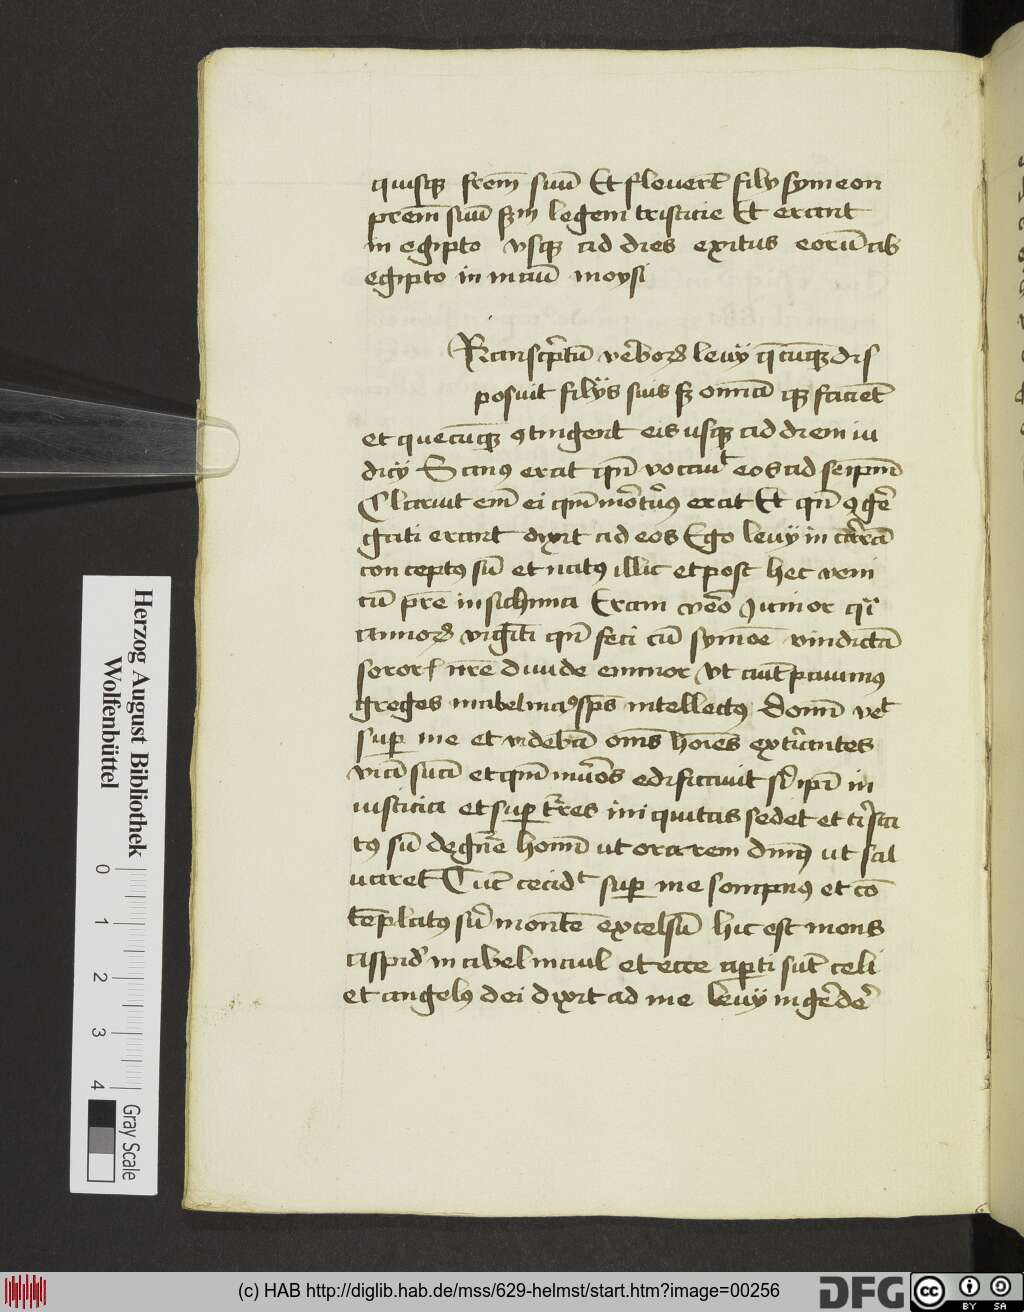 quisq frem suu Et fleuert filij symeon
prem suu scdm legem tristicie Et erant
in egipto vsq ad dies exitus eoru ab
egipto in manu moysi
Ranscptu verbor leuij qcuq dis
posuit filijs suis scdm omnia q facient
et quecuq contingent eis usq ad diem iu
dicij Sanus erat qn vocauit eos ad seipm
Claruit em ei qm moriturus erat Et qn congre
gati erant dixit ad eos Ego leuij in carra
conceptus su et natus illic et post hec veni
cu pre in sichima Eram vero iunior qsi
annor viginti qn feci cu symeoe vindicta
soror nre diuide emmor Vt aut pauimus
greges in abelmaul sps intellectus domini venit
sup me et videba oms hoies exterminantes
via sua et qm muros edificauit sibi ipa in
iusticia et sup turres iniquitas sedet et trista
tus su de genere homi ut orarem dnm ut sal
uaret Tuc cecidit sup me sompnus et con
templatus su monte excelsu hic est mons
aspidis in abelmaul et ecce aperti sut celi
et angelus dei dixit ad me leuij ingredere
Herzog August Bibliothek
Wolfenbüttel
0 1 2 3 4
Gray Scale
(c) HAB http://diglib.hab.de/mss/629-helmst/start.htm?image=00256
DFG
cc BY SA